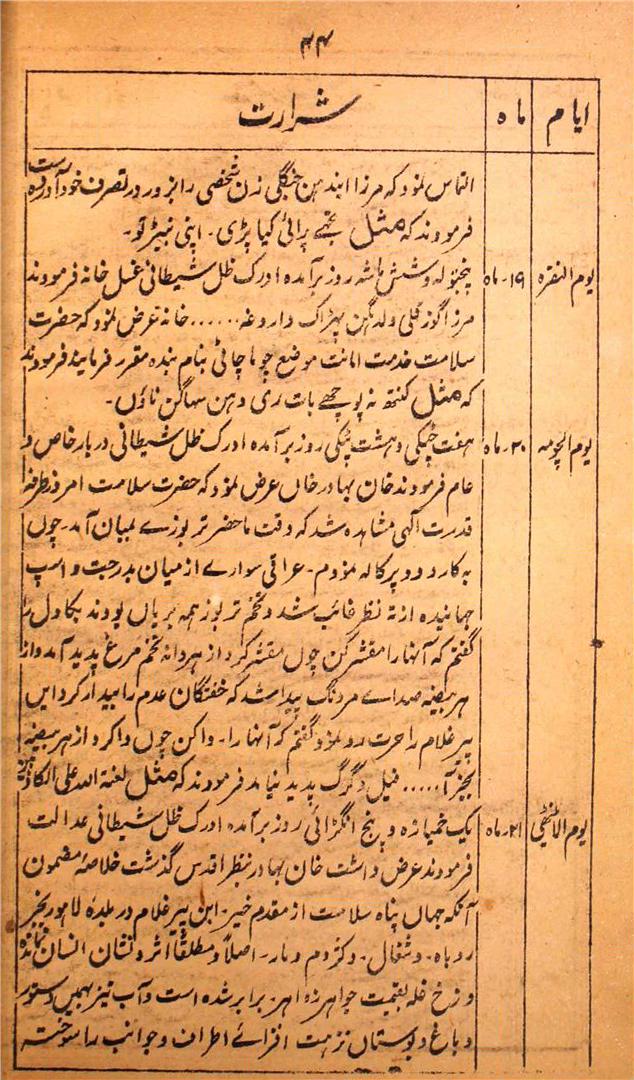 ۴۴
ایام ماہ شرارت
التماس نمود کہ مرزا ابند ہن جنگلی زن شخصی را بزور در تصرف خود آوردہ است
فرمودند کہ مثل تجھے پرائی کیا پڑی۔ اپنی نبیڑ تو۔
یوم النقرہ ۱۹۔ماہ پنجتولہ و شش ماشہ روز برآمدہ ادرک ظل شیطانی غسل خانہ فرمودند
مرزا گوز قلی ولد نگہن پہڑاک داروغہ ...... خانہ عرض نمود کہ حضرت
سلامت خدمت امانت موضع چوما چاٹی بنام بندہ مقرر فرمایند فرمودند
کہ مثل کنتھ نہ پوچھے بات ری دہن سہاگن ناؤں۔
یوم الچومہ ۲۰۔ماہ ہفت چپکی و ہشت پٹکی روز برآمدہ ادرک ظل شیطانی دربار خاص و
عام فرمودند خان بہادر خاں عرض نمود کہ حضرت سلامت امروز طرفہ
قدرت الٰہی مشاہدہ شد کہ وقت ماحضر تربوزے بمیان آمد۔ چوں
بہ کارد دو پرکالہ نمودم۔ عراقی سوارے از میان بدر جست و اسپ
جہانیدہ از نظر غائب شد و تخم تربوز ہمہ بریاں بودند بکاول را
گفتم کہ آنہا را مقشر کن چوں مقشر کرد از ہر دانہ تخم مرغ پدید آمد و از
ہر بیضہ صداے مردنگ پیدا شد کہ خفتگان عدم را بیدار کرد ایں
پیر غلام را حیرت رو نمود گفتم کہ آنہا را۔ واکن چوں وا کرد از ہر بیضہ
بجز آ..... فیل و گرگ پدید نیامد فرمودند کہ مثل لعنۃ اللہ علی الکاذبین
یوم الانٹھی ۲۱۔ماہ یک خمیازہ و پنج انگڑائی روز برآمدہ ادرک ظل شیطانی عدالت
فرمودند عرض داشت خان بہادر بنظر اقدس گذشت خلاصۂ مضمون
آنکہ جہاں پناہ سلامت از مقدم خیر۔ ابن پیر غلام در بلدۂ لاہور بجز
روباہ۔ و شغال۔ و کژدم و مار۔ اصلاً و مطلقاً اثر و نشان انسان نماندہ
و نرخ غلہ بقیمت جواہر زواہر۔ برابر شدہ است و آب نیز بہمیں دستور
و باغ و بوستاں نزہت افزائے اطراف و جوانب را سوختہ